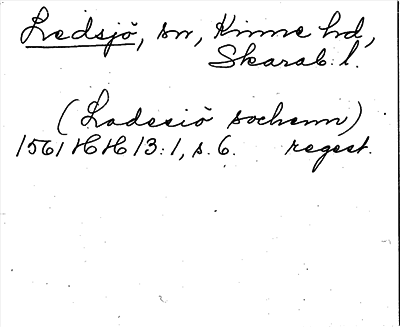 Ledsjö, sn, Kinne hd,
Skarab. l.
(Ladesiö sochenn)
1561 HH 13:1, s. 6. regest.